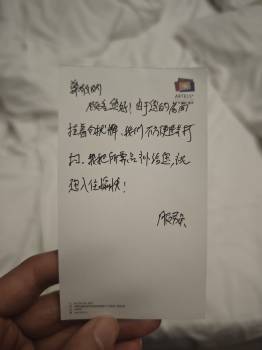 ARTELS+
尊敬的
顾客您好！由于您的房间
挂着勿扰牌，我们不方便进去打
扫，我把所需品补给您，祝
您入住愉快！
服务员